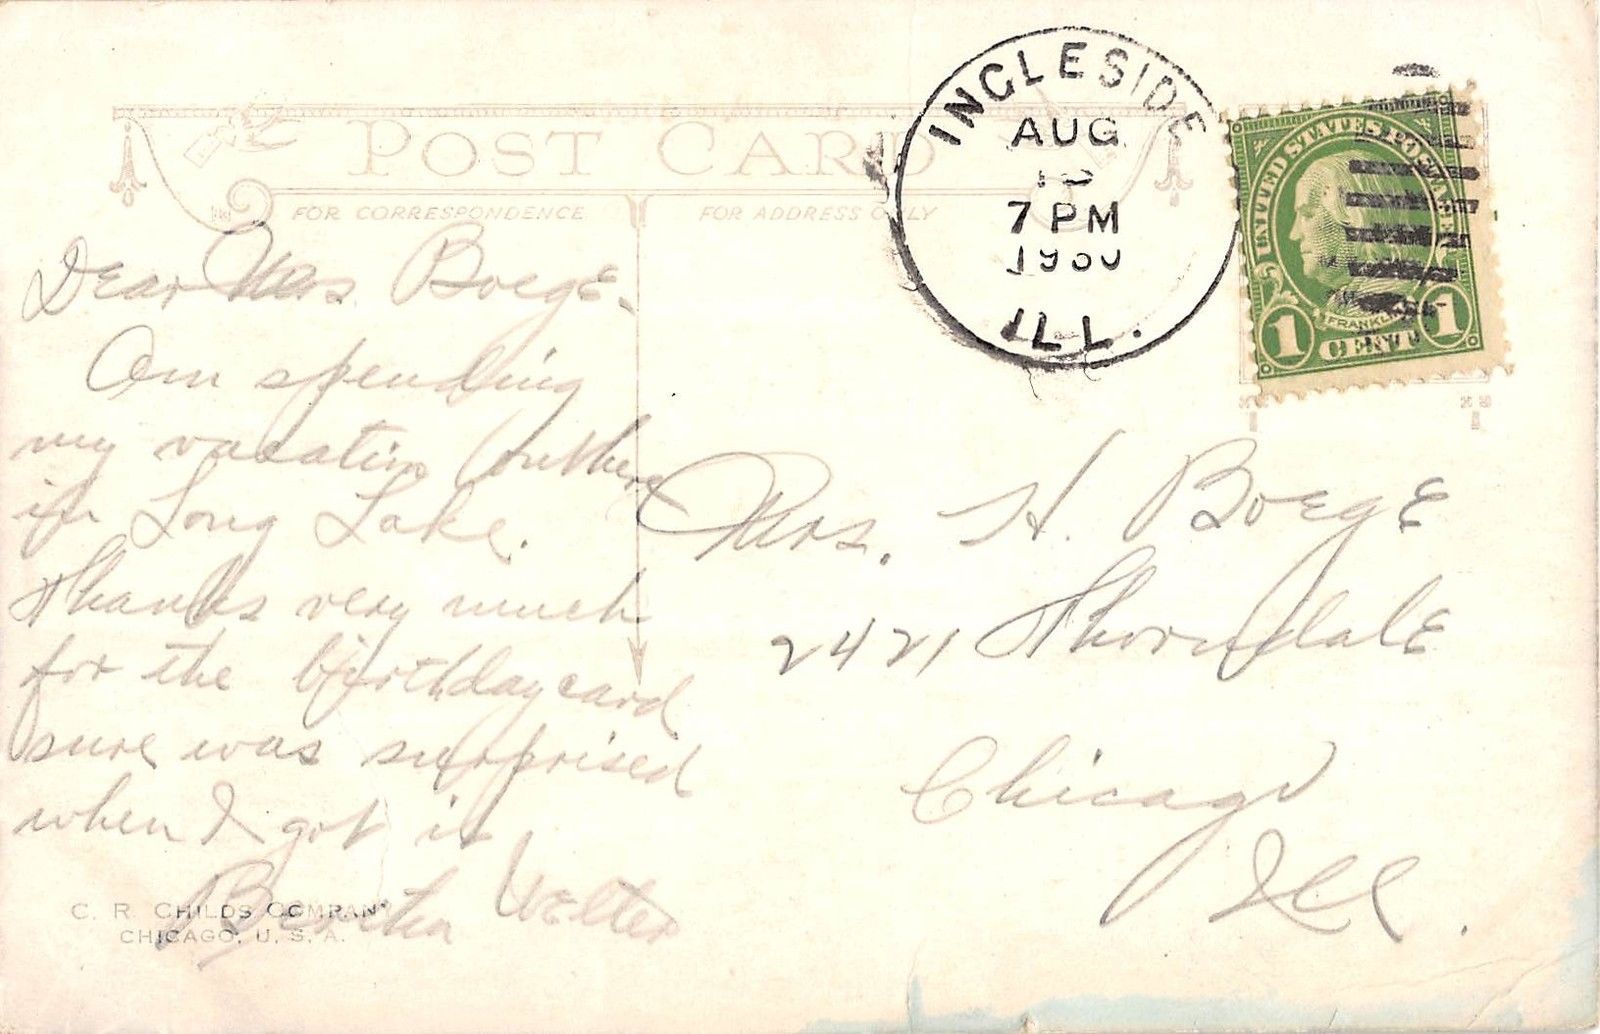 POST CARD
FOR CORRESPONDENCE
FOR ADDRESS ONLY
INGLESIDE
AUG
7 PM
ILL.
UNITED STATES POSTAGE
FRANKLIN
1 CENT 1
Dear Mrs Boege.
Am spending
my vacation out here
in Long Lake.
Thanks very much
for the birthday card
sure was surprised
when I got it
Bertha Welter
Mrs. H. Boege
2421 Thorndale
Chicago
Ill.
C. R. CHILDS COMPANY
CHICAGO, U. S. A.